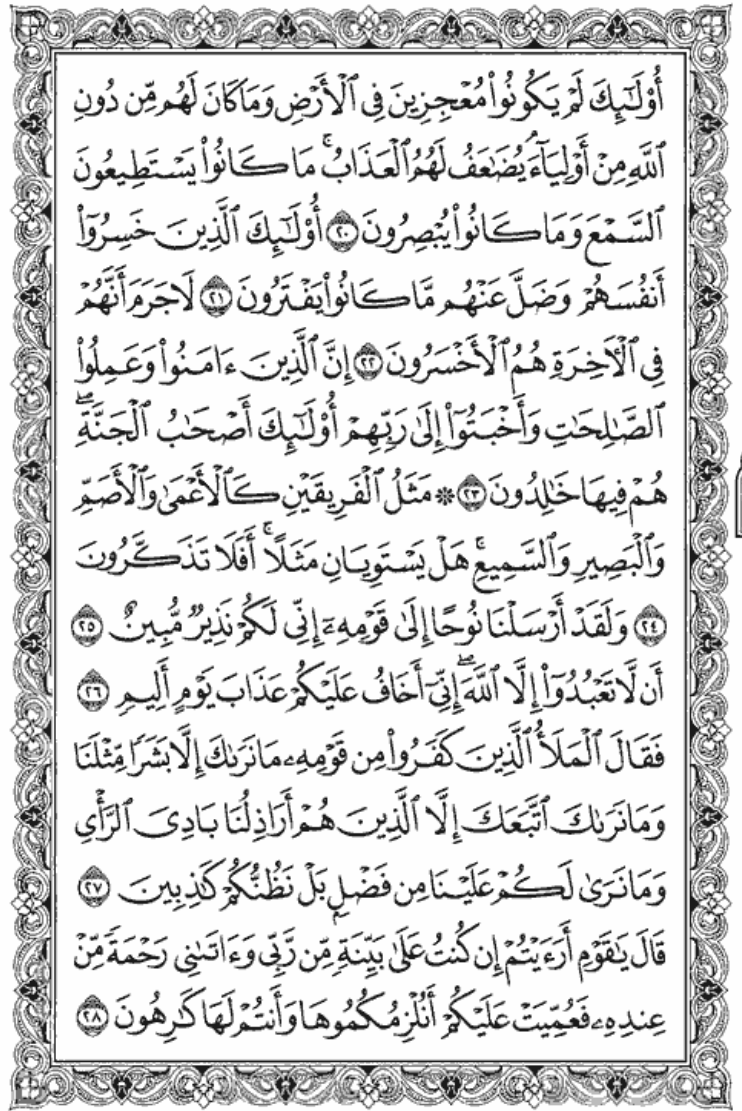 أُوْلَٰٓئِكَ لَمۡ يَكُونُواْ مُعۡجِزِينَ فِي ٱلۡأَرۡضِ وَمَا كَانَ لَهُم مِّن دُونِ
ٱللَّهِ مِنۡ أَوۡلِيَآءَۘ يُضَٰعَفُ لَهُمُ ٱلۡعَذَابُۚ مَا كَانُواْ يَسۡتَطِيعُونَ
ٱلسَّمۡعَ وَمَا كَانُواْ يُبۡصِرُونَ ٢٠ أُوْلَٰٓئِكَ ٱلَّذِينَ خَسِرُوٓاْ
أَنفُسَهُمۡ وَضَلَّ عَنۡهُم مَّا كَانُواْ يَفۡتَرُونَ ٢١ لَا جَرَمَ أَنَّهُمۡ
فِي ٱلۡأٓخِرَةِ هُمُ ٱلۡأَخۡسَرُونَ ٢٢ إِنَّ ٱلَّذِينَ ءَامَنُواْ وَعَمِلُواْ
ٱلصَّٰلِحَٰتِ وَأَخۡبَتُوٓاْ إِلَىٰ رَبِّهِمۡ أُوْلَٰٓئِكَ أَصۡحَٰبُ ٱلۡجَنَّةِۖ
هُمۡ فِيهَا خَٰلِدُونَ ٢٣ ۞ مَثَلُ ٱلۡفَرِيقَيۡنِ كَٱلۡأَعۡمَىٰ وَٱلۡأَصَمِّ
وَٱلۡبَصِيرِ وَٱلسَّمِيعِۚ هَلۡ يَسۡتَوِيَانِ مَثَلًاۚ أَفَلَا تَذَكَّرُونَ
٢٤ وَلَقَدۡ أَرۡسَلۡنَا نُوحًا إِلَىٰ قَوۡمِهِۦٓ إِنِّي لَكُمۡ نَذِيرٞ مُّبِينٌ ٢٥
أَن لَّا تَعۡبُدُوٓاْ إِلَّا ٱللَّهَۖ إِنِّيٓ أَخَافُ عَلَيۡكُمۡ عَذَابَ يَوۡمٍ أَلِيمٖ ٢٦
فَقَالَ ٱلۡمَلَأُ ٱلَّذِينَ كَفَرُواْ مِن قَوۡمِهِۦ مَا نَرَىٰكَ إِلَّا بَشَرٗا مِّثۡلَنَا
وَمَا نَرَىٰكَ ٱتَّبَعَكَ إِلَّا ٱلَّذِينَ هُمۡ أَرَاذِلُنَا بَادِيَ ٱلرَّأۡيِ
وَمَا نَرَىٰ لَكُمۡ عَلَيۡنَا مِن فَضۡلِۭ بَلۡ نَظُنُّكُمۡ كَٰذِبِينَ ٢٧
قَالَ يَٰقَوۡمِ أَرَءَيۡتُمۡ إِن كُنتُ عَلَىٰ بَيِّنَةٖ مِّن رَّبِّي وَءَاتَىٰنِي رَحۡمَةٗ مِّنۡ
عِندِهِۦ فَعُمِّيَتۡ عَلَيۡكُمۡ أَنُلۡزِمُكُمُوهَا وَأَنتُمۡ لَهَا كَٰرِهُونَ ٢٨